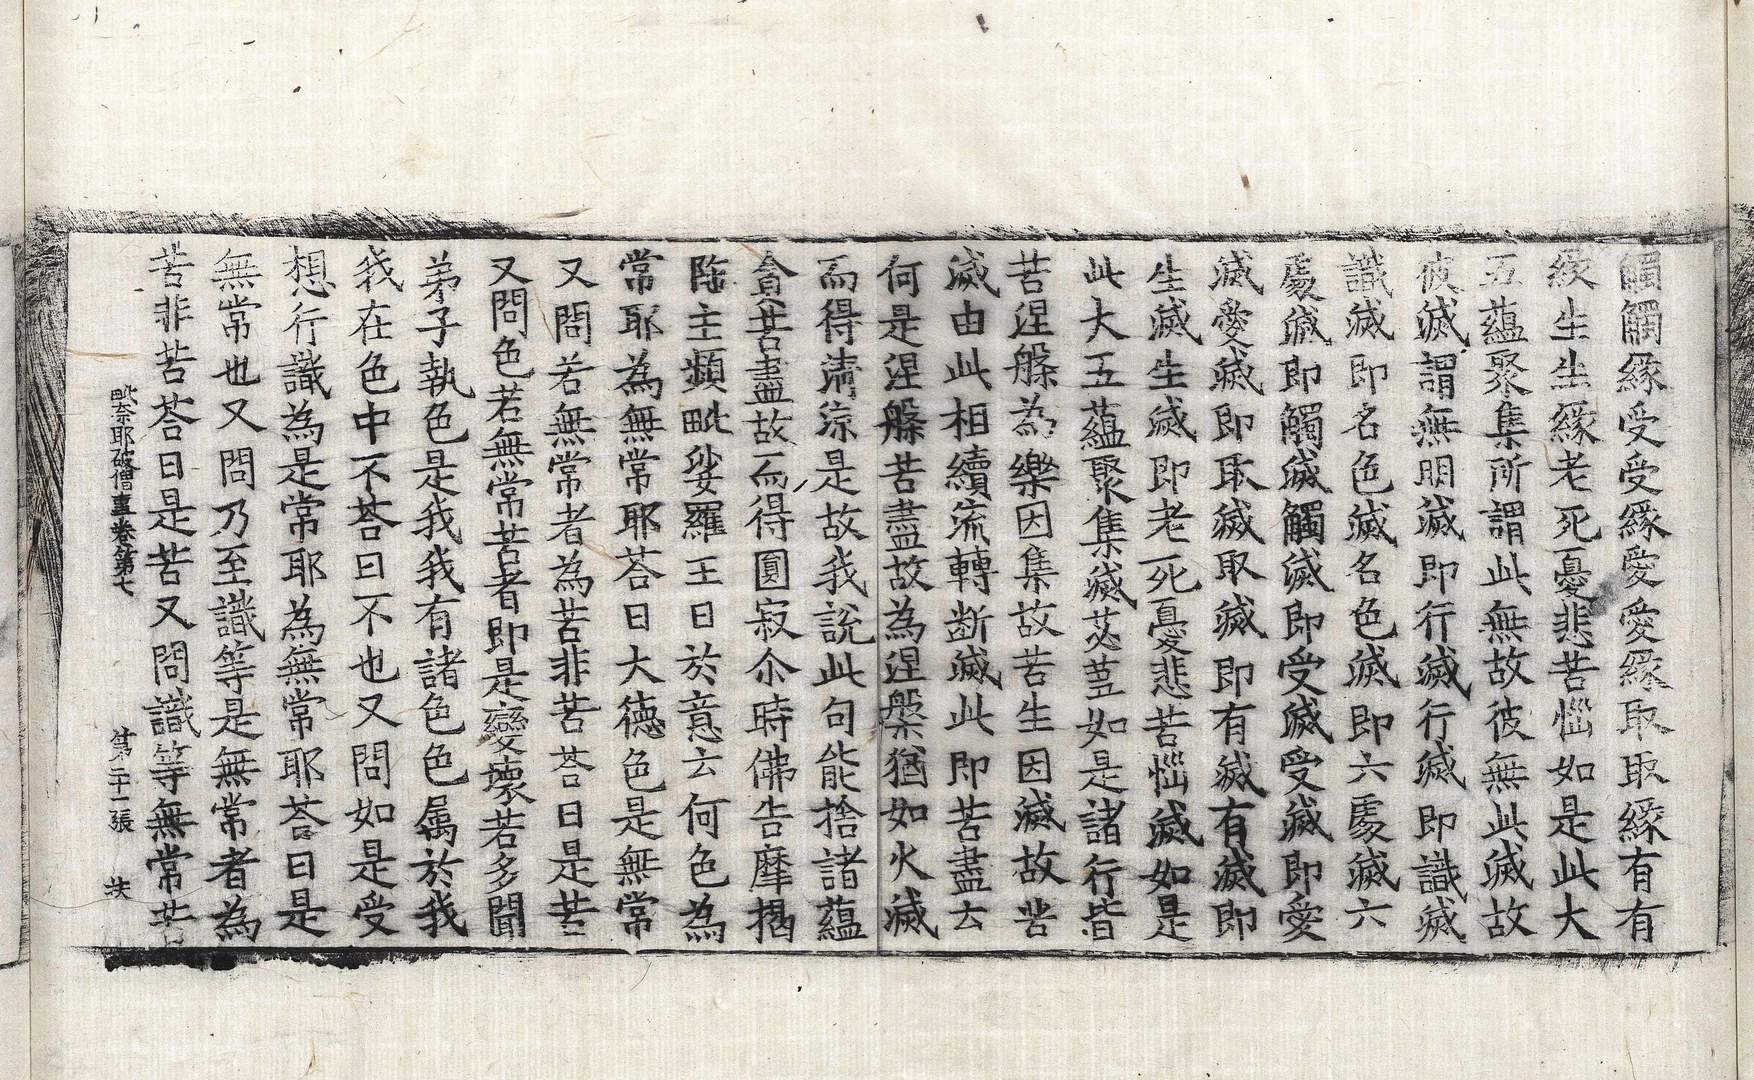 觸觸緣受受緣愛愛緣取取緣有有
緣生生緣老死憂悲苦惱如是此大
五蘊聚集所謂此無故彼無此滅故
彼滅謂無明滅即行滅行滅即識滅
識滅即名色滅名色滅即六處滅六
處滅即觸滅觸滅即受滅受滅即愛
滅愛滅即取滅取滅即有滅有滅即
生滅生滅即老死憂悲苦惱滅如是
此大五蘊聚集滅苾蒭如是諸行皆
苦涅槃為樂因集故苦生因滅故苦
滅由此相續流轉断滅此即苦盡去
何是涅槃苦盡故為涅槃猶如火滅
而得清涼是故我說此句能捨諸蘊
貪苦盡故而得圓寂尒時佛告摩揭
陁主頻毗娑羅王曰於意云何色為
常耶為無常耶荅曰大德色是無常
又問若無常者為苦非苦荅曰是苦
又問色若無常苦者即是變壞若多聞
弟子執色是我我有諸色色属於我
我在色中不荅曰不也又問如是受
想行識為是常耶為無常耶荅曰是
無常也又問乃至識等是無常者為
苦非苦荅曰是苦又問識等無常苦
毗奈耶破僧事卷第七 第二十一張